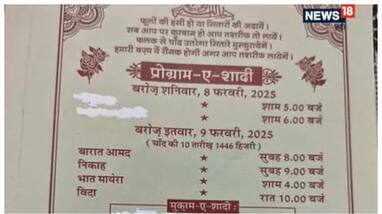 NEWS 18
फूलों की हंसी हो या सितारों की अदायें।
सब आप पर कुरबान हो आप तशरीफ तो लायें।
फलक से चाँद उतरेगा सितारे मुस्कुरायेंगे।
हमारी बज़्म में रौनक होगी अगर आप तशरीफ लायेंगे।
प्रोग्राम-ए-शादी
बरोज़ शनिवार, 8 फरवरी, 2025
★ शाम 5.00 बजे
★ शाम 6.00 बजे
बरोज़ इतवार, 9 फरवरी, 2025
( चाँद की 10 तारीख 1446 हिजरी )
बारात आमद ★ सुबह 8.00 बजे
निकाह ★ सुबह 9.00 बजे
भात मायेरा ★ शाम 4.00 बजे
विदा ★ रात 10.00 बजे
मुक़ाम-ए-शादी :